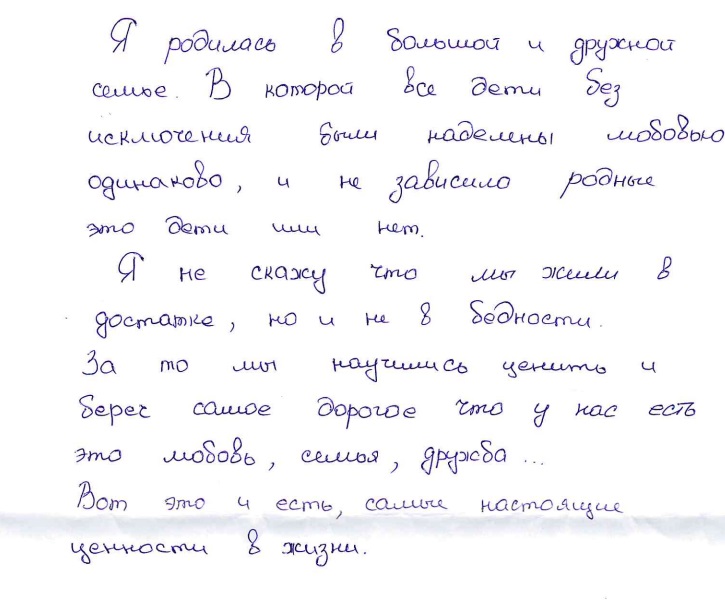 Я родилась в большой и дружной
семье. В которой все дети без
исключения были наделены любовью
одинаково, и не зависило родные
это дети или нет.
Я не скажу что мы жили в
достатке, но и не в бедности.
За то мы научились ценить и
береч самое дорогое что у нас есть
это любовь, семья, дружба...
Вот это и есть, самые настоящие
ценности в жизни.